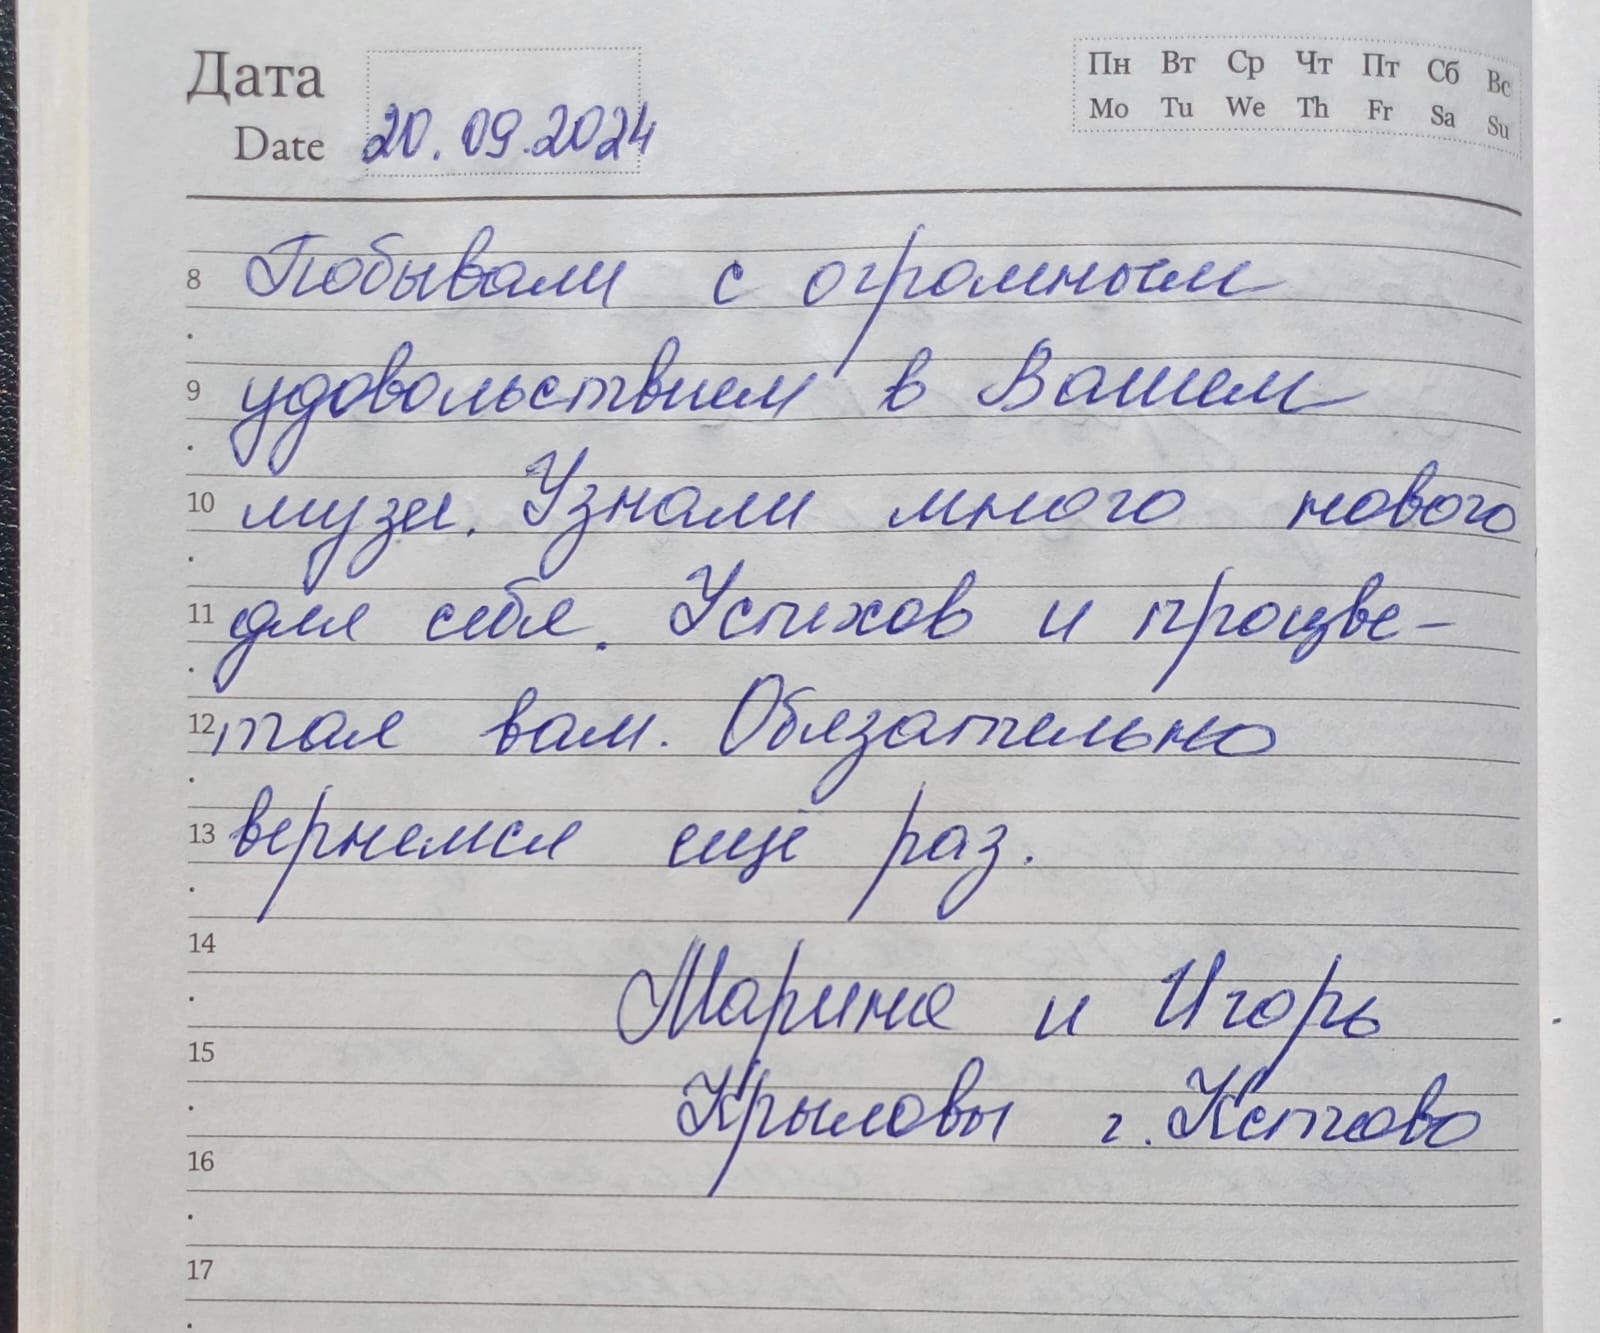 Дата
Date 20.09.2024
Пн Вт Ср Чт Пт Сб Вс
Mo Tu We Th Fr Sa Su
8 Побывали с огромным
9 удовольствием в Вашем
10 музее. Узнали много нового
11 для себя. Успехов и процве-
12 тая вам. Обязательно
13 вернемся ещё раз.
14
Марина и Игорь
15
Крыловы г. Кстово
16
17